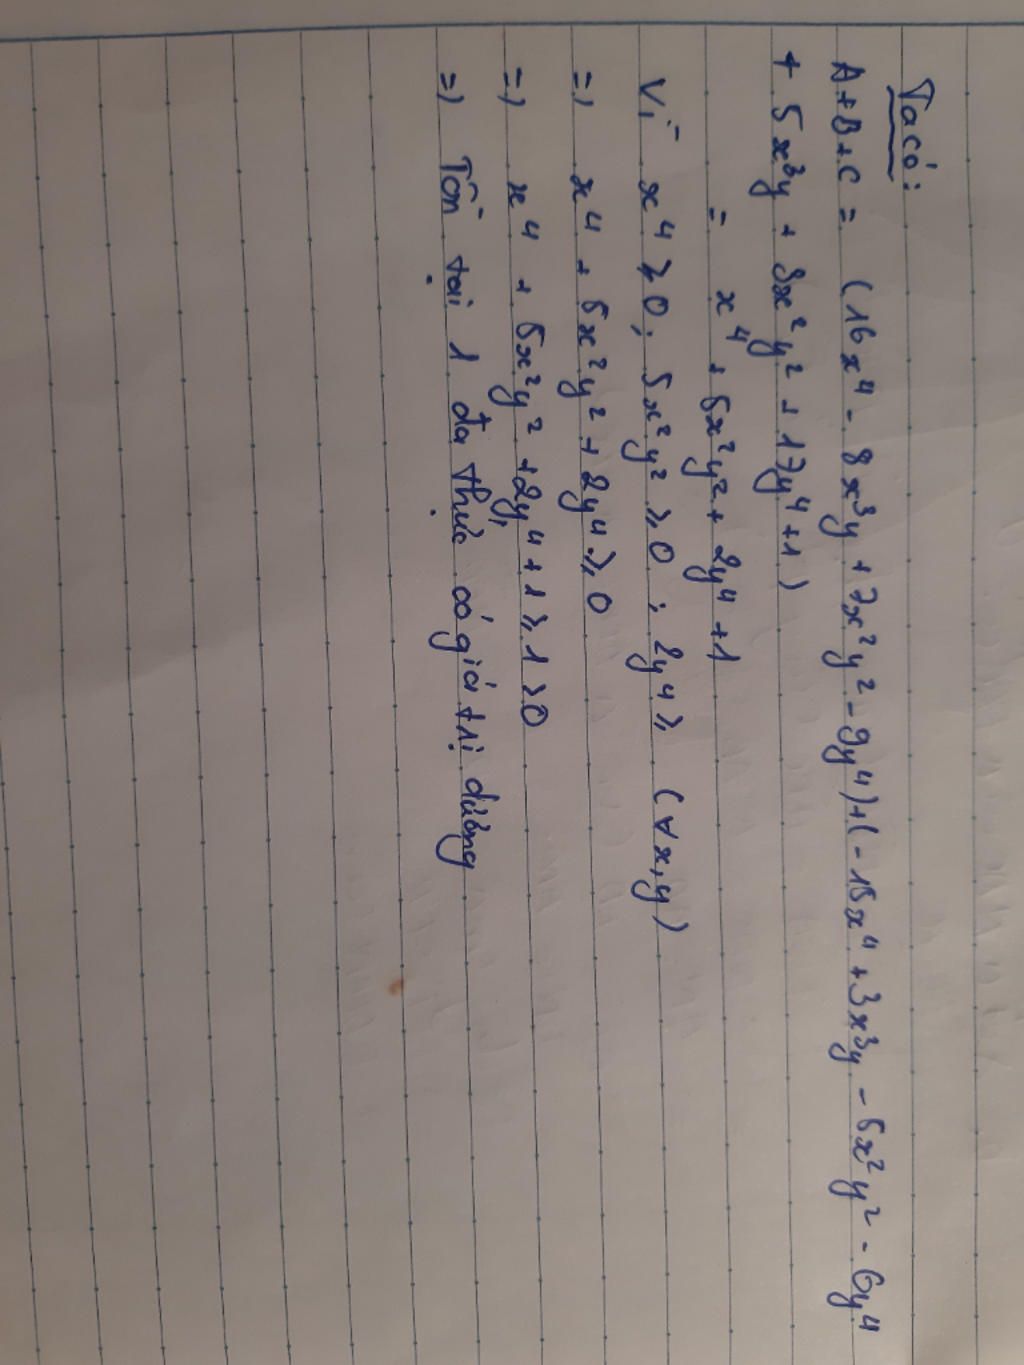 Ta có:
A+B+C = (16x⁴ - 8x³y + 7x²y² - 9y⁴)+(-15x⁴ + 3x³y - 5x²y² - 6y⁴
+ 5x³y + 3x²y² + 17y⁴+1)
= x⁴ + 5x²y² + 2y⁴ +1
Vì x⁴ ⩾ 0; 5x²y² ⩾ 0 ; 2y⁴ ⩾ (∀x,y)
=> x⁴ + 5x²y² + 2y⁴ ⩾ 0
=> x⁴ + 5x²y² + 2y⁴ + 1 ⩾ 1 >0
=> Tồn tại 1 đa thức có giá trị dương